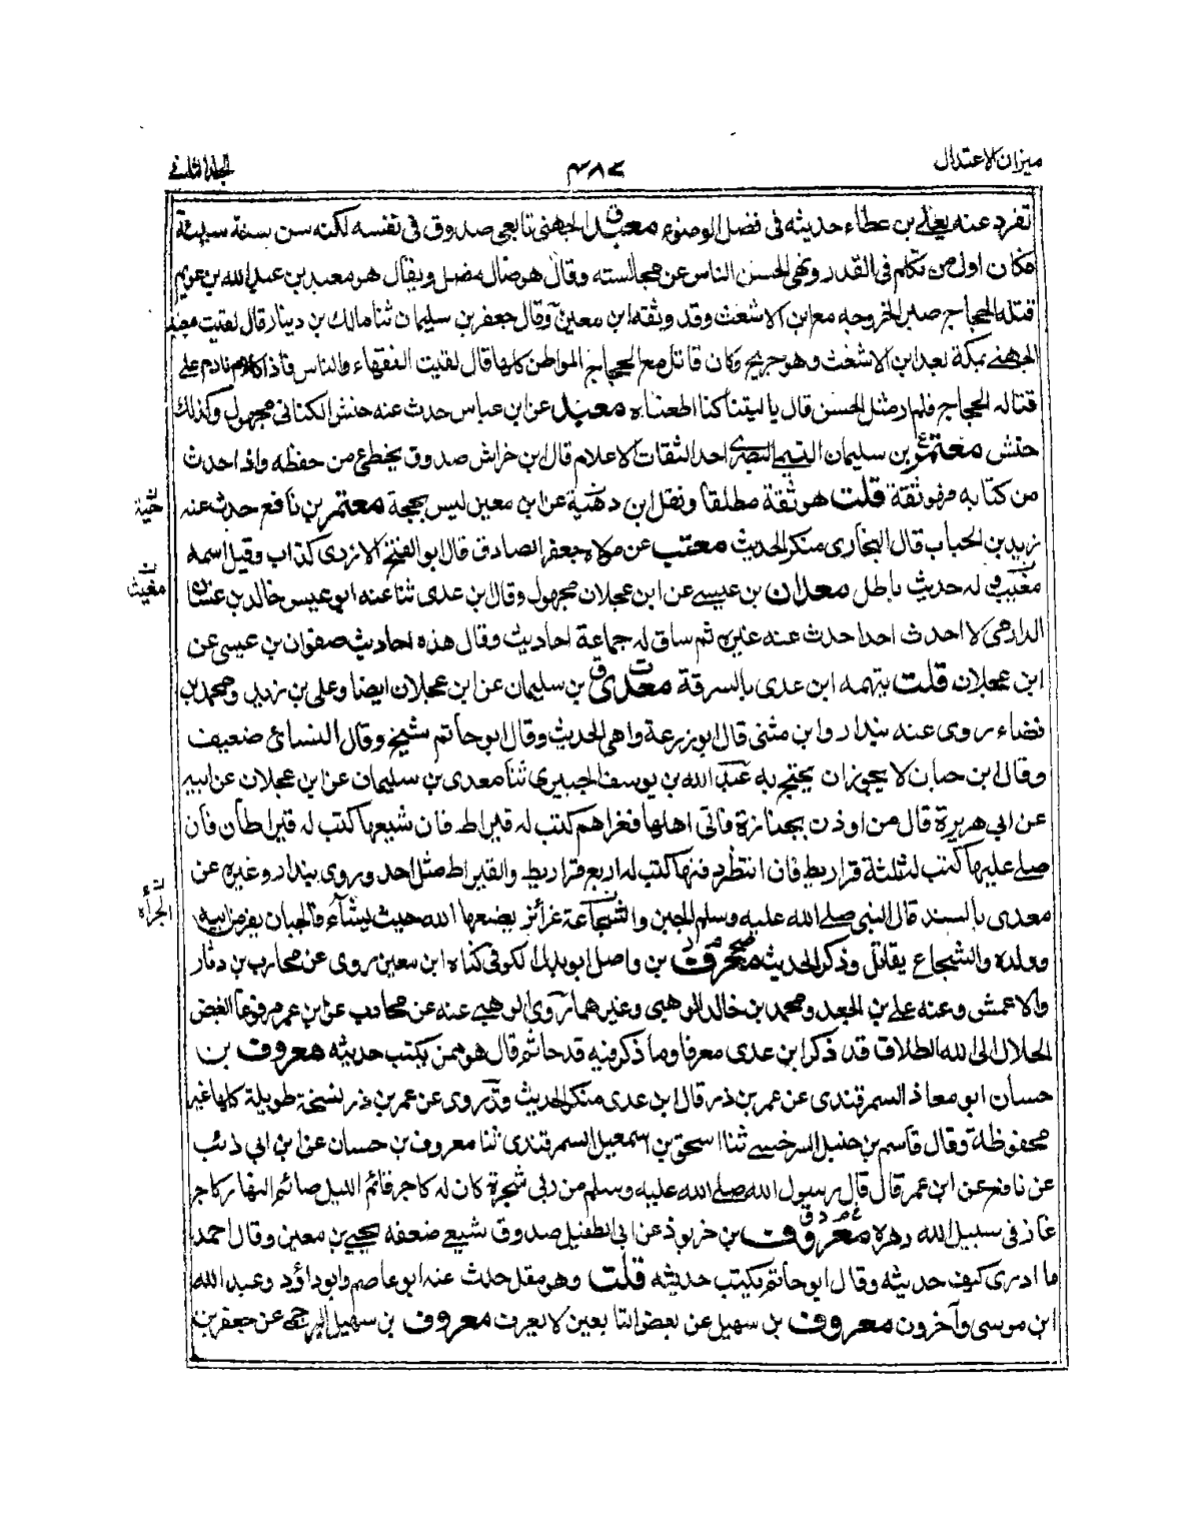 ميزان الاعتدال
٤٨٣
الجلد الثاني
تفرد عنه يعلى بن عطاء حديثه في فضل الوضوء معبد الجهني تابعي صدوق في نفسه لكنه سن سنة سيئة
فكان اول من تكلم في القدر ونهى الحسن الناس عن مجالسته وقال هو ضال مضل ويقال هو معبد بن عبد الله بن عويم
قتله الحجاج صبرا لخروجه مع ابن الاشعث وقد وثقه ابن معين وقال جعفر بن سليمان ثنا مالك بن دينار قال لقيت معبد
الجهني بمكة بعد ابن الاشعث وهو جريح وكان قاتل مع الحجاج المواطن كلها قال لقيت الفقهاء والناس فاذا كلهم نادم على
قتاله الحجاج فلم ار مثل الحسن قال يا ليتنا كنا اطعناه معبد عن ابن عباس حدث عنه حنش الكناني مجهول وكذلك
حنش معتمر بن سليمان التيمي البصري احد الثقات الاعلام قال ابن خراش صدوق يخطئ من حفظه واذا حدث
من كتابه فهو ثقة قلت هو ثقة مطلقا ونقل ابن دحية عن ابن معين ليس بحجة معتمر بن نافع حدث عنه
زيد بن الحباب قال البخاري منكر الحديث معتب عن مولاه جعفر الصادق قال ابو الفتح الازدي كذاب وقيل اسمه
مغيث له حديث باطل معدان بن عيسى عن ابن عجلان مجهول وقال ابن عدي ثنا عنه ابو عيسى خالد بن غسان
الدارمي لا احدث احدا حدث عنه غيره ثم ساق له جماعة احاديث وقال هذه احاديث صفوان بن عيسى عن
ابن عجلان قلت يتهمه ابن عدي بالسرقة معدي بن سليمان عن ابن عجلان ايضا وعلي بن زيد ومحمد بن
فضاء روى عنه بندار وابن مثنى قال ابو زرعة واهي الحديث وقال ابو حاتم شيخ وقال النسائي ضعيف
وقال ابن حبان لا يجوز ان يحتج به عبد الله بن يوسف الجبيري ثنا معدي بن سليمان عن ابن عجلان عن ابيه
عن ابي هريرة قال من اوذن بجنازة فأتى اهلها فعزاهم كتب له قيراط فان شيعها كتب له قيراطان فان
صلى عليها كتب له ثلثة قراريط فان انتظر دفنها كتب له اربع قراريط والقيراط مثل احد وروى بندار وغيره عن
معدي بالسند قال النبي صلى الله عليه وسلم الجبن والشجاعة غرائز يضعها الله حيث يشآء فالجبان يفر من ابيه
وولده والشجاع يقاتل وذكر الحديث معرف بن واصل ابو بدل الكوفي كناه ابن معين روى عن محارب بن دثار
والاعمش وعنه علي بن الجعد ومحمد بن خالد الوهبي وغيرهما روى الوهبي عنه عن محارب عن ابن عمر مرفوعا ابغض
الحلال الى الله الطلاق قد ذكر ابن عدي معرفا وما ذكر فيه قدحا ثم قال هو ممن يكتب حديثه معروف بن
حسان ابو معاذ السمرقندي عن عمر بن ذر قال ابن عدي منكر الحديث وقد روى عن عمر بن ذر نسخة طويلة كلها غير
محفوظة وقال قاسم بن حنبل السرخسي ثنا اسحق بن اسمعيل السمرقندي ثنا معروف بن حسان عن ابن ابي ذئب
عن نافع عن ابن عمر قال قال رسول الله صلى الله عليه وسلم من ربى شجرة كان له كاجر قائم الليل صائم النهار كاجر
غاز في سبيل الله دهره معروف بن خربوذ عن ابي الطفيل صدوق شيعي ضعفه يحيى بن معين وقال احمد
ما ادري كيف حديثه وقال ابو حاتم يكتب حديثه قلت وهو مقل حدث عنه ابو عاصم وابو داؤد وعبد الله
ابن موسى وآخرون معروف بن سهيل عن بعض التابعين لا يعرف معروف بن سهيل البرجمي عن جعفر بن
حية
مغيث
الجرأة